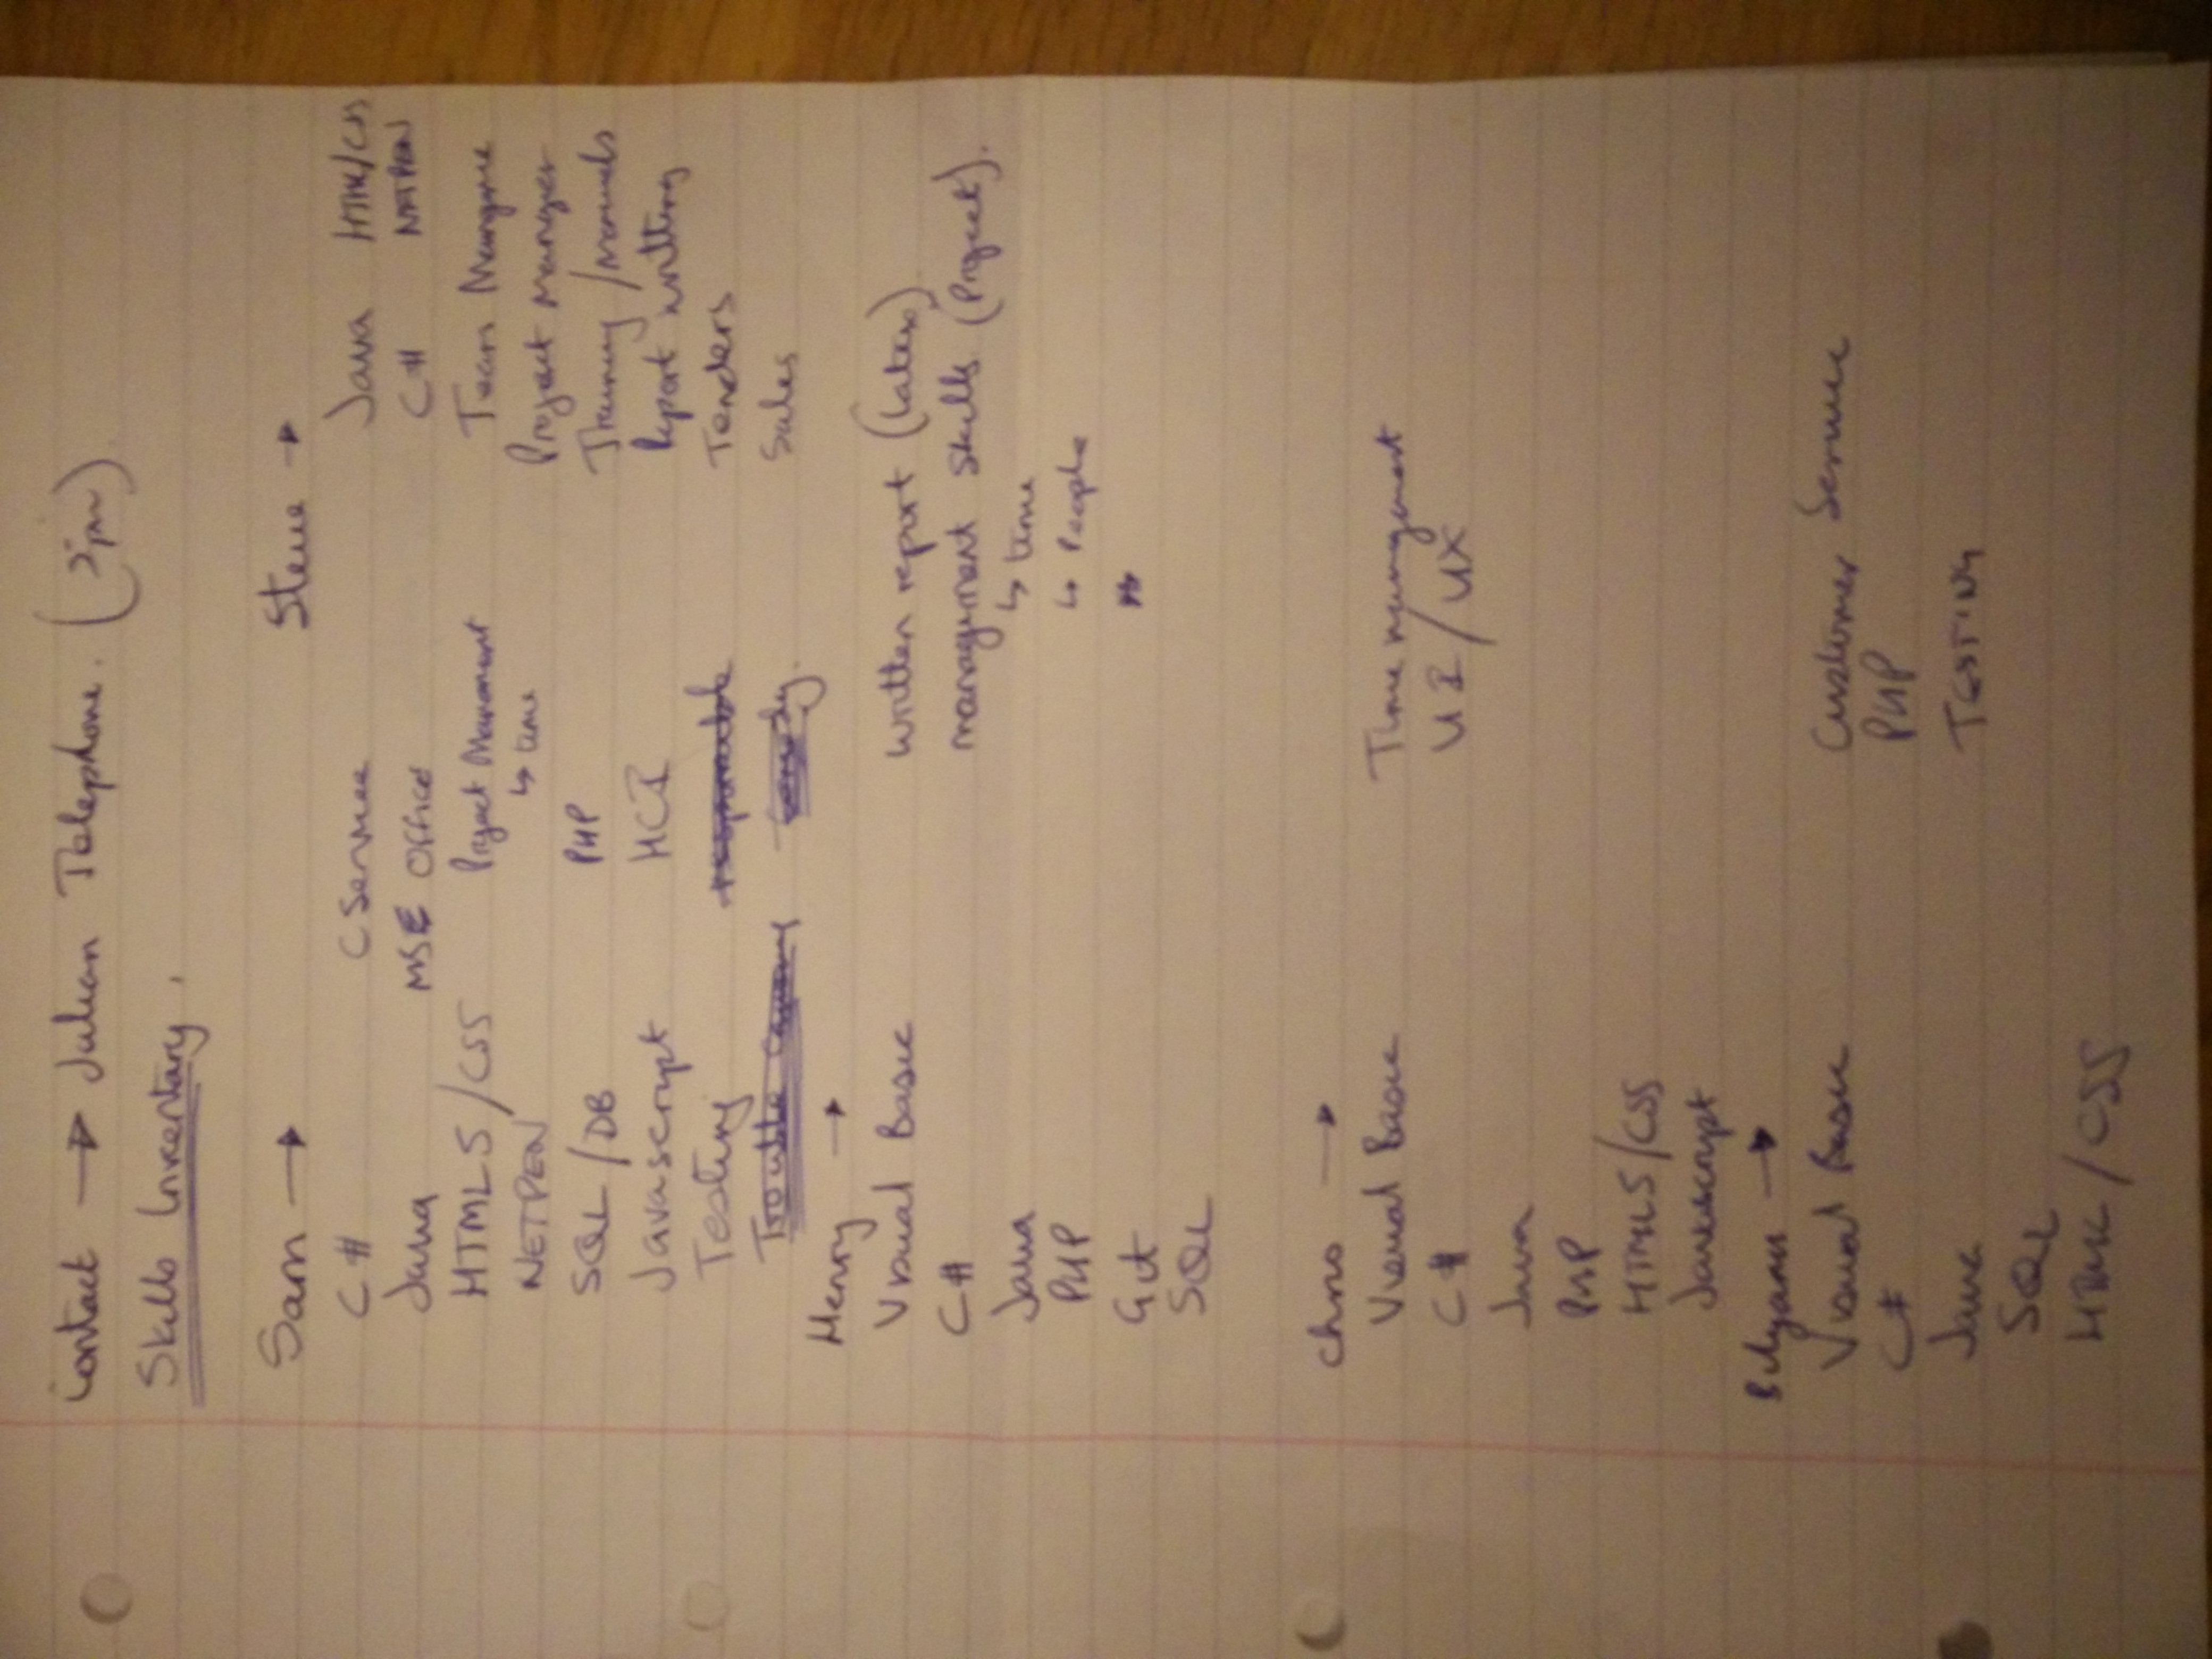 Contact → Julian Telephone. (3pm).
Skills Inventary.
Sam →
C#
Java
HTML5/CSS
NETPEN
SQL/DB
Javascript
Testing
C Service
MS Office
Project Management
↳ time
PHP
HCI
Steve →
Java HTML/CSS
C# NETPEN
Team Manager
Project Manager
Training/Manuals
Report writting
Tenders
Sales
Henry →
Visual Basic
C#
Java
PHP
Git
SQL
written report (latex)
management skills (Project).
↳ time
↳ People
Chris →
Visual Basic
C#
Java
PHP
HTML5/CSS
Javascript
Time management
UI/UX
Visual Basic
C#
Java
SQL
HTML/CSS
Customer Service
PHP
TESTING